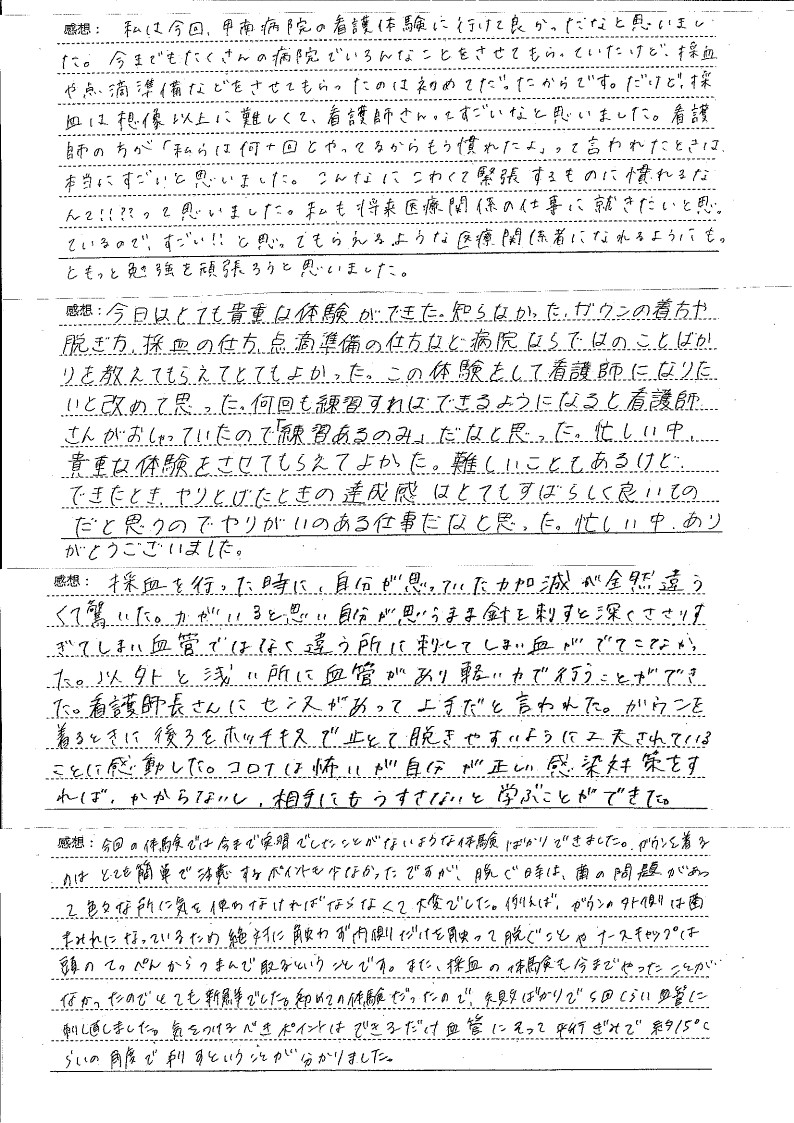 感想： 私は今回、甲南病院の看護体験に行けて良かっだなと思いまし
た。今までもたくさんの病院でいろんなことをさせてもらっていたけど、採血
や点滴準備などをさせてもらったのは初めてだったからです。だけど、採
血は想像以上に難しくて、看護師さんってすごいなと思いました。看護
師の方が「私らは何十回とやってるからもう慣れたよ」って言われたときは、
本当にすごいと思いました。こんなにこわくて緊張するものに慣れるな
んて!!??って思いました。私も将来医療関係の仕事に就きたいと思っ
ているので、すごい!!と思ってもらえるような医療関係者になれるようにも
ともっと勉強を頑張ろうと思いました。
感想： 今日はとても貴重な体験ができた。知らなかった、ガウンの着方や
脱ぎ方、採血の仕方、点滴準備の仕方など病院ならではのことばか
りを教えてもらえてとてもよかった。この体験をして看護師になりた
いと改めて思った。何回も練習すればできるようになると看護師
さんがおしゃっていたので「練習あるのみ」だなと思った。忙しい中、
貴重な体験をさせてもらえてよかった。難しいこともあるけど
できたとき、やりとげたときの達成感はとてもすばらしく良いもの
だと思うのでやりがいのある仕事だなと思った。忙しい中、あり
がとうございました。
感想： 採血を行った時に、自分が思っていた力加減が全然違う
くて驚いた。力がいると思い自分が思うまま針を刺すと深くささりす
ぎてしまい血管ではなく違う所に刺してしまい血がでてこなかっ
た。以外と浅い所に血管があり軽い力で行うことができ
た。看護師長さんにセンスがあって上手だと言われた。ガウンを
着るときに後ろをホッチキスで止とて脱ぎやすいように工夫されている
ことに感動した。コロナは怖いが自分が正しい感染対策をす
れば、かからないし、相手にもうすさないと学ぶことができた。
感想： 今回の体験では今まで実習でしたことがないような体験ばかりできました。ガウンを着る
のはとても簡単で注意するポイントも少なかったですが、脱ぐ時は、菌の問題があっ
て色々な所に気を使わなければならなくて大変でした。例えば、ガウンの外側は菌
まみれになっているため絶対に触わず内側だけを触って脱ぐことやナースキャップは
頭のてっぺんからつまんで取るということです。また、採血の体験も今までやったことが
なかったのでとても新鮮でした。初めての体験だったので、失敗ばかりで5回くらい血管に
刺し直しました。気をつけるべきポイントはできるだけ血管にそって平行ぎみで約15°く
らいの角度で刺すということが分かりました。